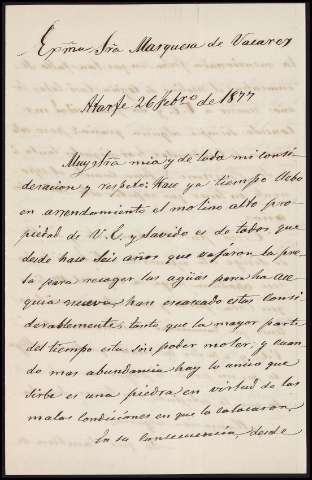 Exma Sra Marquesa de Vacares
Atarfe 26 Febro de 1877
Muy Sra mia y de toda mi consi-
deracion y respeto: Hace ya tiempo llebo
en arrendamiento el molino alto pro-
piedad de V. E. y savido es de todos que
desde hace seis años que vajaron la pre-
sa para recoger las aguas para la ace-
quia nueva, han escaseado estas consi-
derablemente, tanto que la mayor parte
del tiempo esta sin poder moler; y cuan-
do mas abundancia hay lo unico que
sirbe es una piedra en virtud de las
malas condiciones en que la colocaron.
En su consecuencia, desde